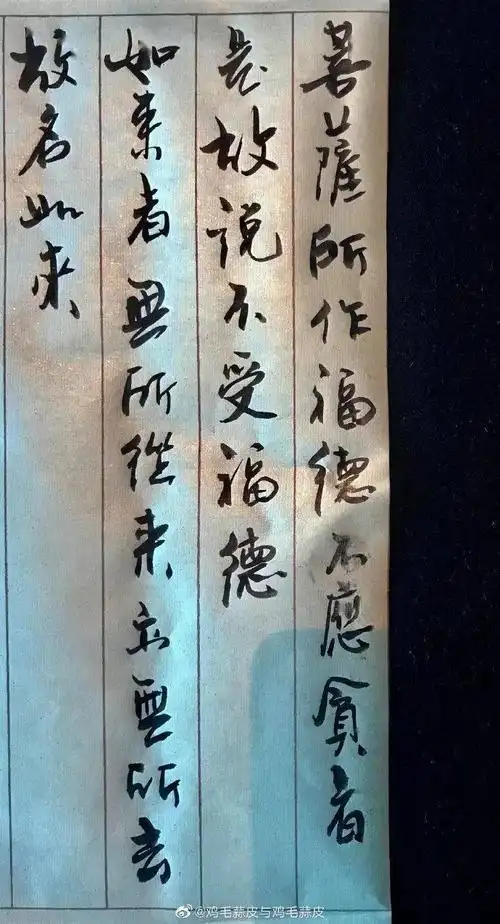 菩薩所作福德不應貪着
是故说不受福德
如来者無所從来亦無所去
故名如來
@鸡毛蒜皮与鸡毛蒜皮